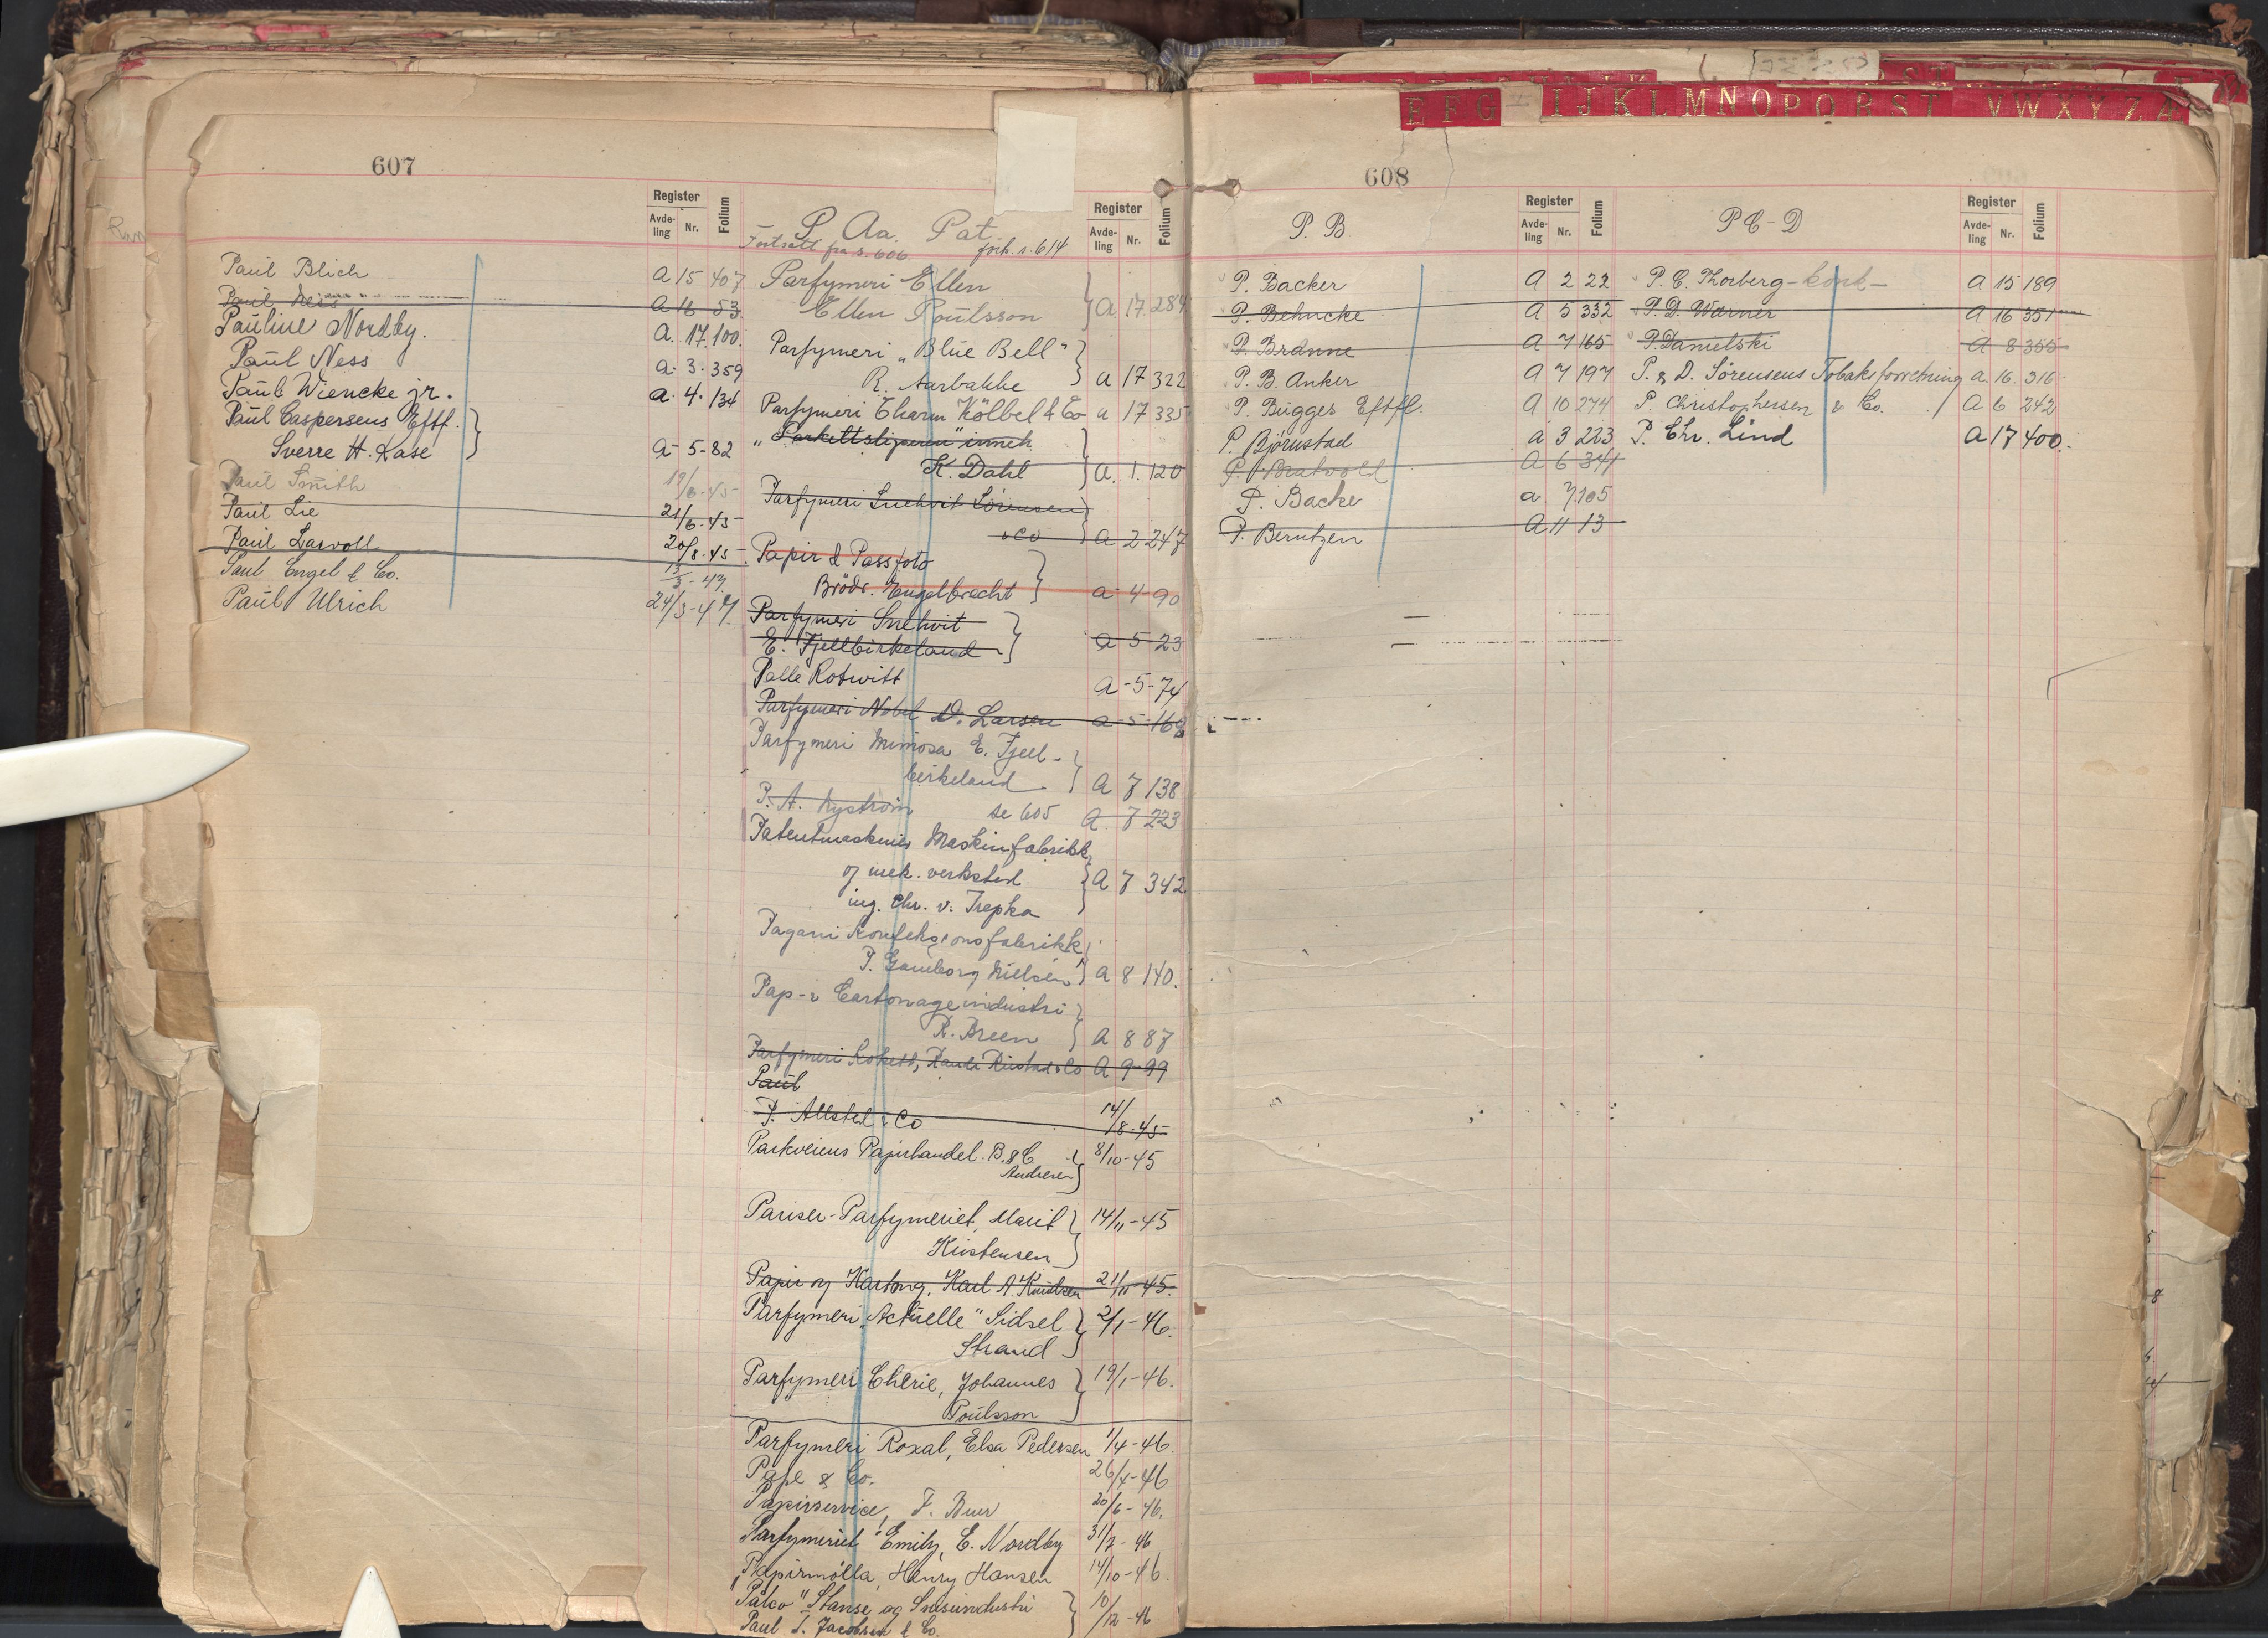 607
Register
Avde-
ling
Nr.
Folium
Paul Blich A 15 407
Paul A 16 53
Pauline Nordby. A. 17. 100.
Paul Ness a. 3. 359
Paul Wiencke jr. a. 4. 134
Paul Caspersens Eftf.
Sverre H. Kase a - 5 - 82
Paul Smith 19/6-45
Paul Lie 21/6-45
Paul Larvoll 20/8-45
Paul Engel & Co. 13/3-47.
Paul Ulrich 24/3-47.
P Aa. Pat.
Fortsatt fra s. 606 forts. s. 614
Register
Avde-
ling
Nr.
Folium
Parfymeri Ellen
Ellen Poulsson A 17. 284
Parfymeri "Blue Bell"
R. Aarbakke a 17 322
Parfymeri Charm Kölbel & Co a 17 335
K. Dahl a. 1. 120
Parfymeri Snehvit Sörensen
& Co a 2 247
Papir & Passfoto
Brödr. Engelbrecht a - 4 - 90
Parfymeri Snehvit
E. Fjellbirkeland a - 5 - 23
Palle Rotwitt a - 5 - 74
Parfymeri Nobel D. Larsen a - 5 - 169
Parfymeri Mimosa E. Fjell-
birkeland. A 7 138
P. A. Nyström se 605 A 7 223
Patentmaskiner Maskinfabrikk
og mek. verksted A 7 342
ing. Chr. v. Trepka
Pagani Konfeksjonsfabrikk
P. Gamborg Nielsen A 8 140.
Pap- & Cartonageindustri
R. Breen A 8 87
Parfymeri Kokett, Rustad & Co A 9 - 99
Paul
P. Allsted & Co 14/8-45
Parkveiens Papirhandel. B. & C. 8/10-45
Andresen
Pariser-Parfymeriet, Marit 14/11-45
Kristensen
Papir og Kartong, Karl A. Knudsen 21/11-45.
Parfymeri "Actuelle" Sidsel 2/1-46.
Strand
Parfymeri Cherie, Johannes 19/1-46.
Poulsson
Parfymeri Roxal, Elsa Pedersen 1/4-46.
Pape & Co. 26/4-46
Papirservice, F. Buer 20/6-46.
Parfymeriet "Emily, E. Nordby 31/7-46
Papirmölla, Henry Hansen 14/10-46.
"Palco" Stanse og Snisindustri 10/12-46
Paul T. Jacobsen & Co.
608
P. B.
Register
Avde-
ling
Nr.
Folium
P. Backer A 2 22
P. Behncke A 5 332
P. Branne A 7 165
P. B. Anker A 7 197
P. Bugges Eftfl. A 10 274
P. Björnstad a 3 223
P. Bratvold A 6 341
P. Backe a 7 105
P. Berntzen A 11 13
P C - D
Register
Avde-
ling
Nr.
Folium
P. C. Thorberg - konk - A 15 189
P. D. Warner A 16 351
P. Danielski A 8 355
P. & D. Sörensens Tobaksforretning a. 16. 316
P. Christophersen & Co. A 6 242
P. Chr. Lind A 17 400.
E F G I J K L M N O P Q R S T V W X Y Z